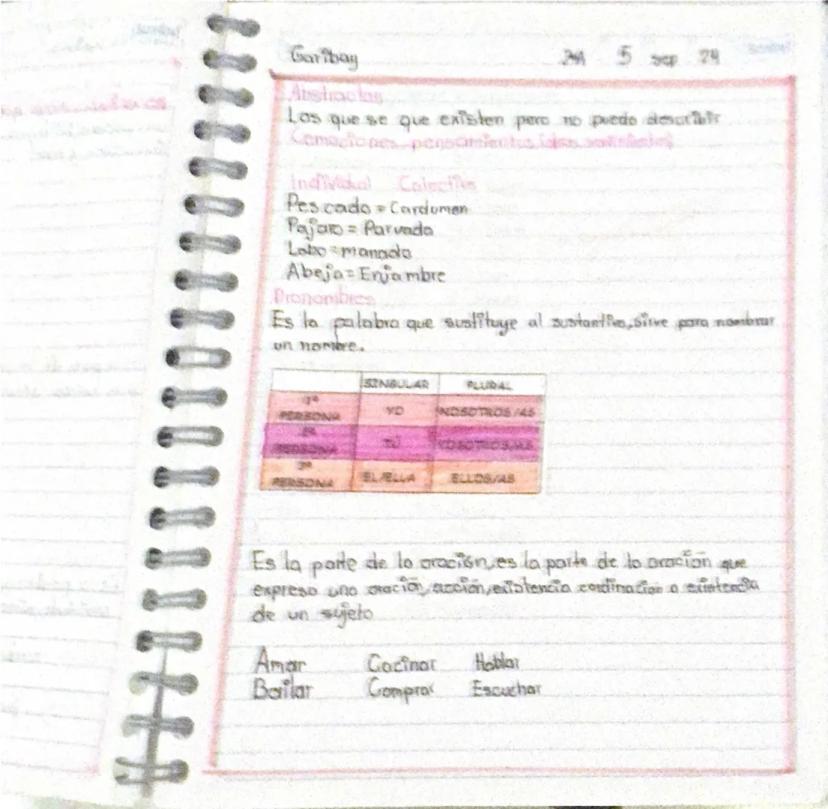 Garibay 2A 5 sep 24
Abstractos
Los que se que existen pero no puedo describir
(emociones, pensamientos, ideas,
Individual Colectivo
Pescado = Cardumen
Pajaro = Parvada
Lobo = manada
Abeja = Enjambre
Pronombres
Es la palabra que sustituye al sustantivo, sirve para nombrar
un nombre.
SINGULAR PLURAL
1ª PERSONA YO NOSOTROS/AS
2ª PERSONA TÚ VOSOTROS/AS
3ª PERSONA EL/ELLA ELLOS/AS
Es la parte de la oración, es la parte de la oración que
expresa una oración, acción, existencia condinación o existencia
de un sujeto
Amar Cocinar Hablar
Bailar Comprar Escuchar